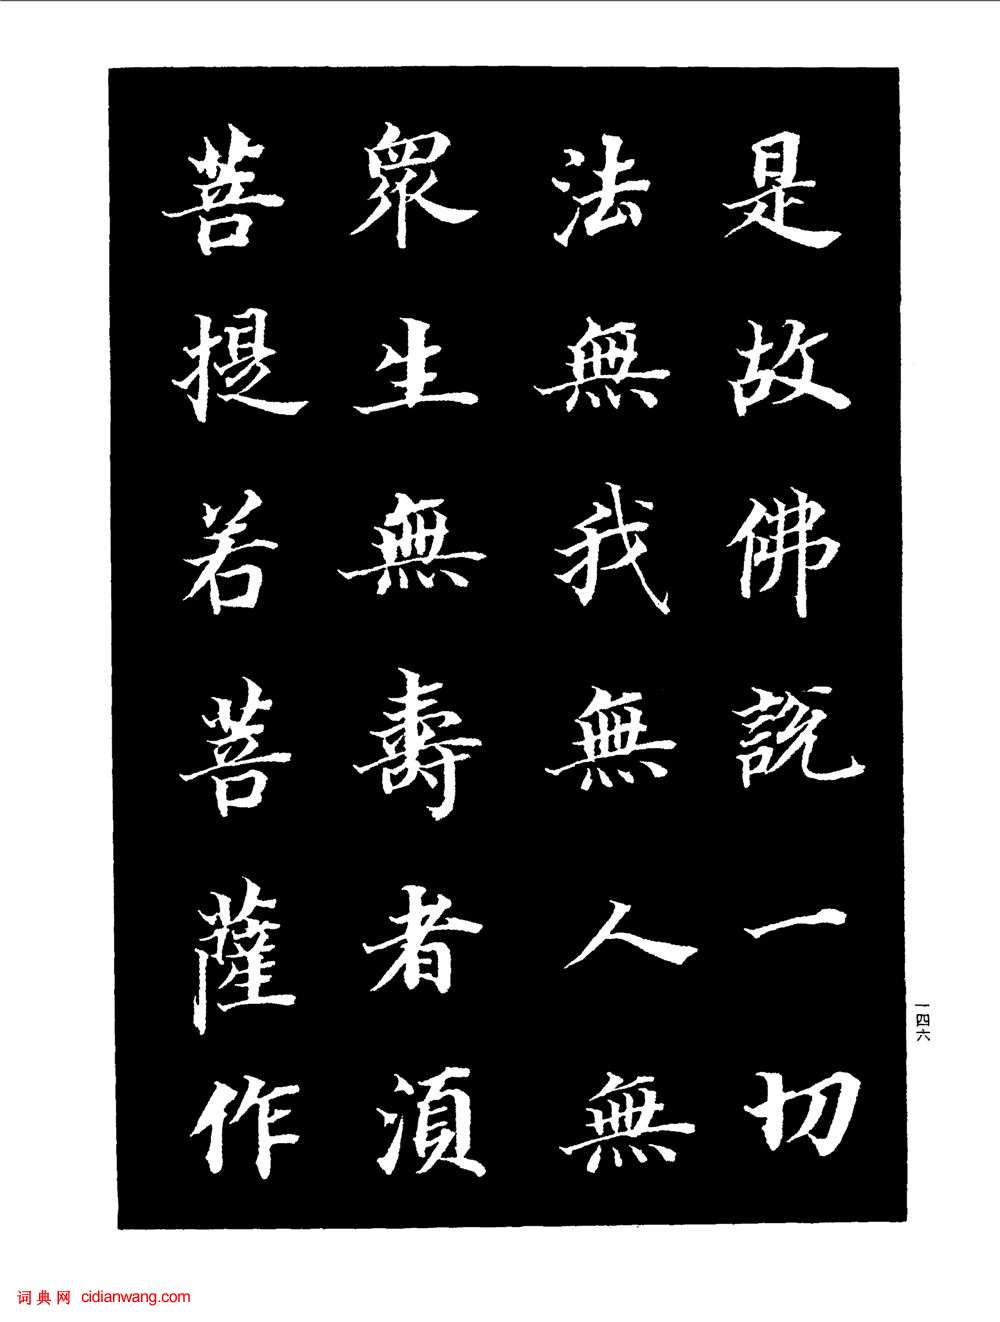 是故佛說一切
法無我無人無
眾生無壽者湏
菩提若菩薩作
一四六
词典网 cidianwang.com